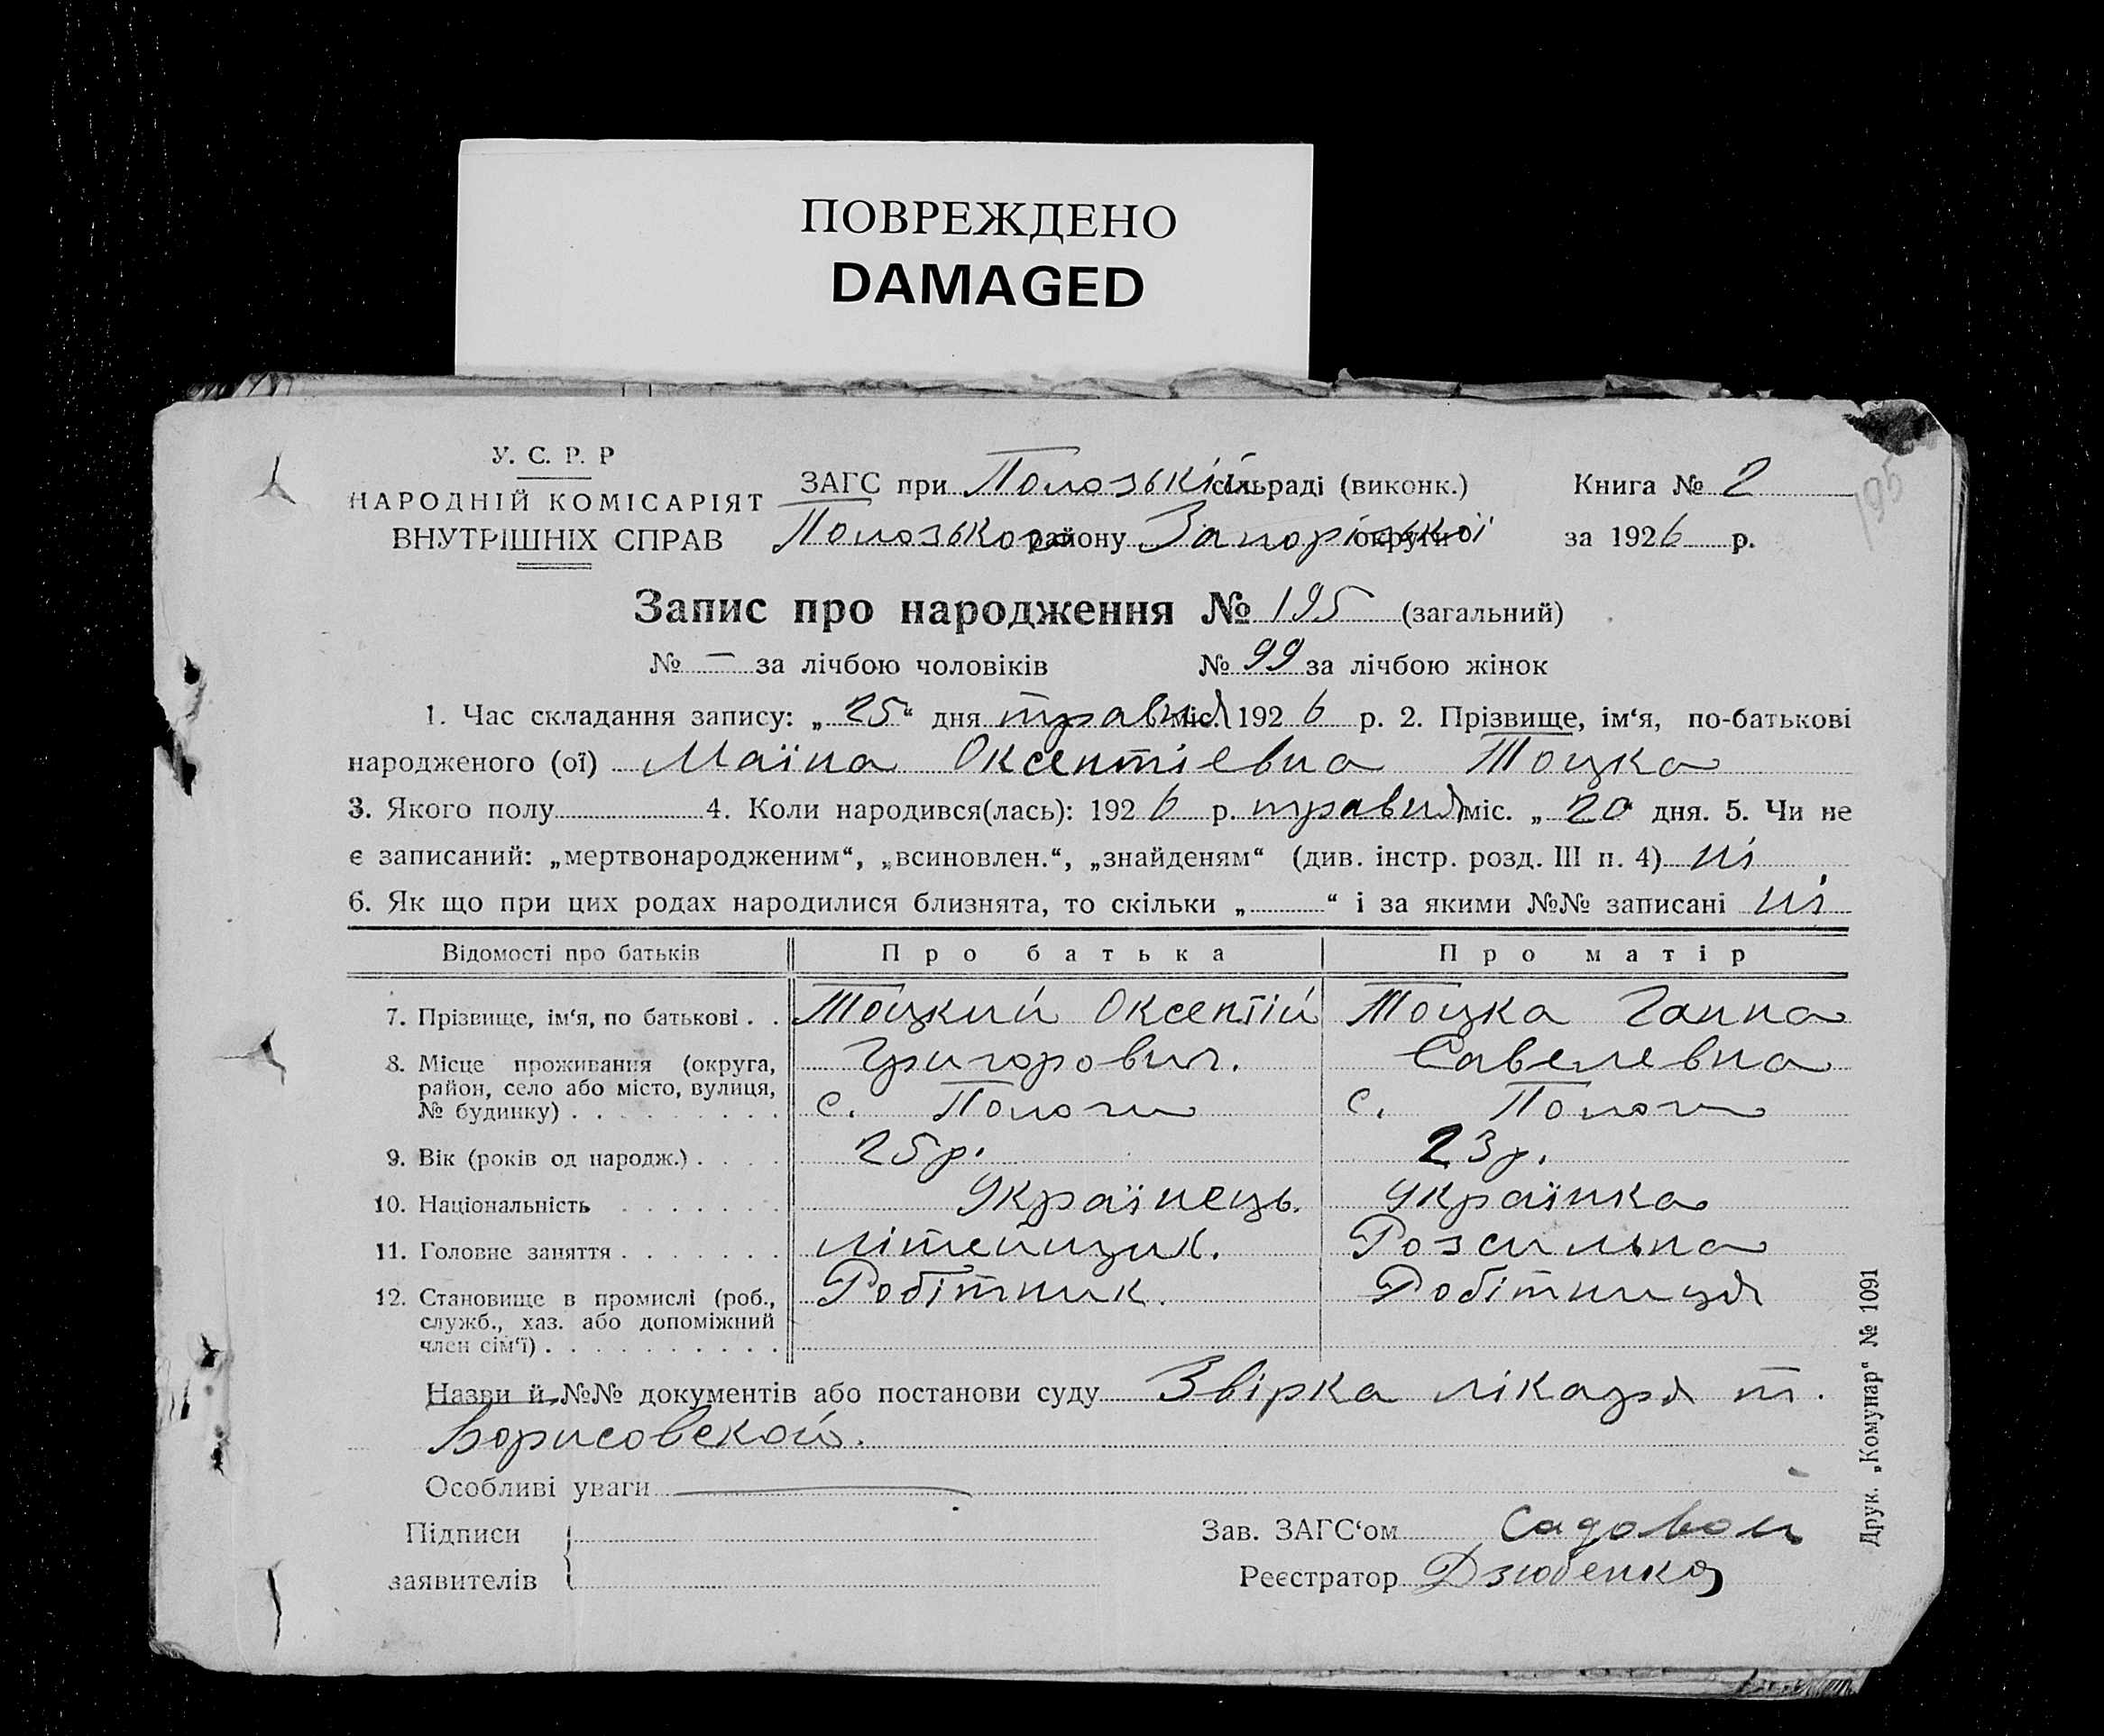 ПОВРЕЖДЕНО
DAMAGED
У. С. Р. Р
НАРОДНІЙ КОМІСАРІЯТ
ВНУТРІШНІХ СПРАВ
ЗАГС при Полозькій сільраді (виконк.)
Полозького району Запорізької округи
Книга № 2
за 1926 р.
195
Запис про народження № 195 (загальний)
№ — за лічбою чоловіків № 99 за лічбою жінок
1. Час складання запису: „25“ дня травня міс. 1926 р. 2. Прізвище, ім‘я, по-батькові
народженого (ої) Маїна Оксентіевна Тоцка
3. Якого полу 4. Коли народився(лась): 1926 р. травня міс. „20 дня. 5. Чи не
є записаний: „мертвонародженим“, „всиновлен.“, „знайденям“ (див. інстр. розд. III п. 4) ні
6. Як що при цих родах народилися близнята, то скільки „ “ і за якими №№ записані ні
Відомості про батьків Про батька Про матір
7. Прізвище, ім‘я, по батькові . . Тоцкий Оксентій Тоцка Ганна
Григорович. Савелевна
8. Місце проживання (округа,
район, село або місто, вулиця,
№ будинку) . . . . . . . . с. Пологи с. Пологи
9. Вік (років од народж.) . . . . 25 р. 23 р.
10. Національність . . . . . . . Українець. Українка
11. Головне заняття . . . . . . . літейщик. Розсильна
12. Становище в промислі (роб., Робітник. Робітниця
служб., хаз. або допоміжний
член сім‘ї) . . . . . . . . . .
Назви й №№ документів або постанови суду Звірка лікаря т.
Борисовской.
Особливі уваги —
Підписи
заявителів
Зав. ЗАГС‘ом Садовой
Реєстратор Дзюбенко
Друк. „Комунар“ № 1091